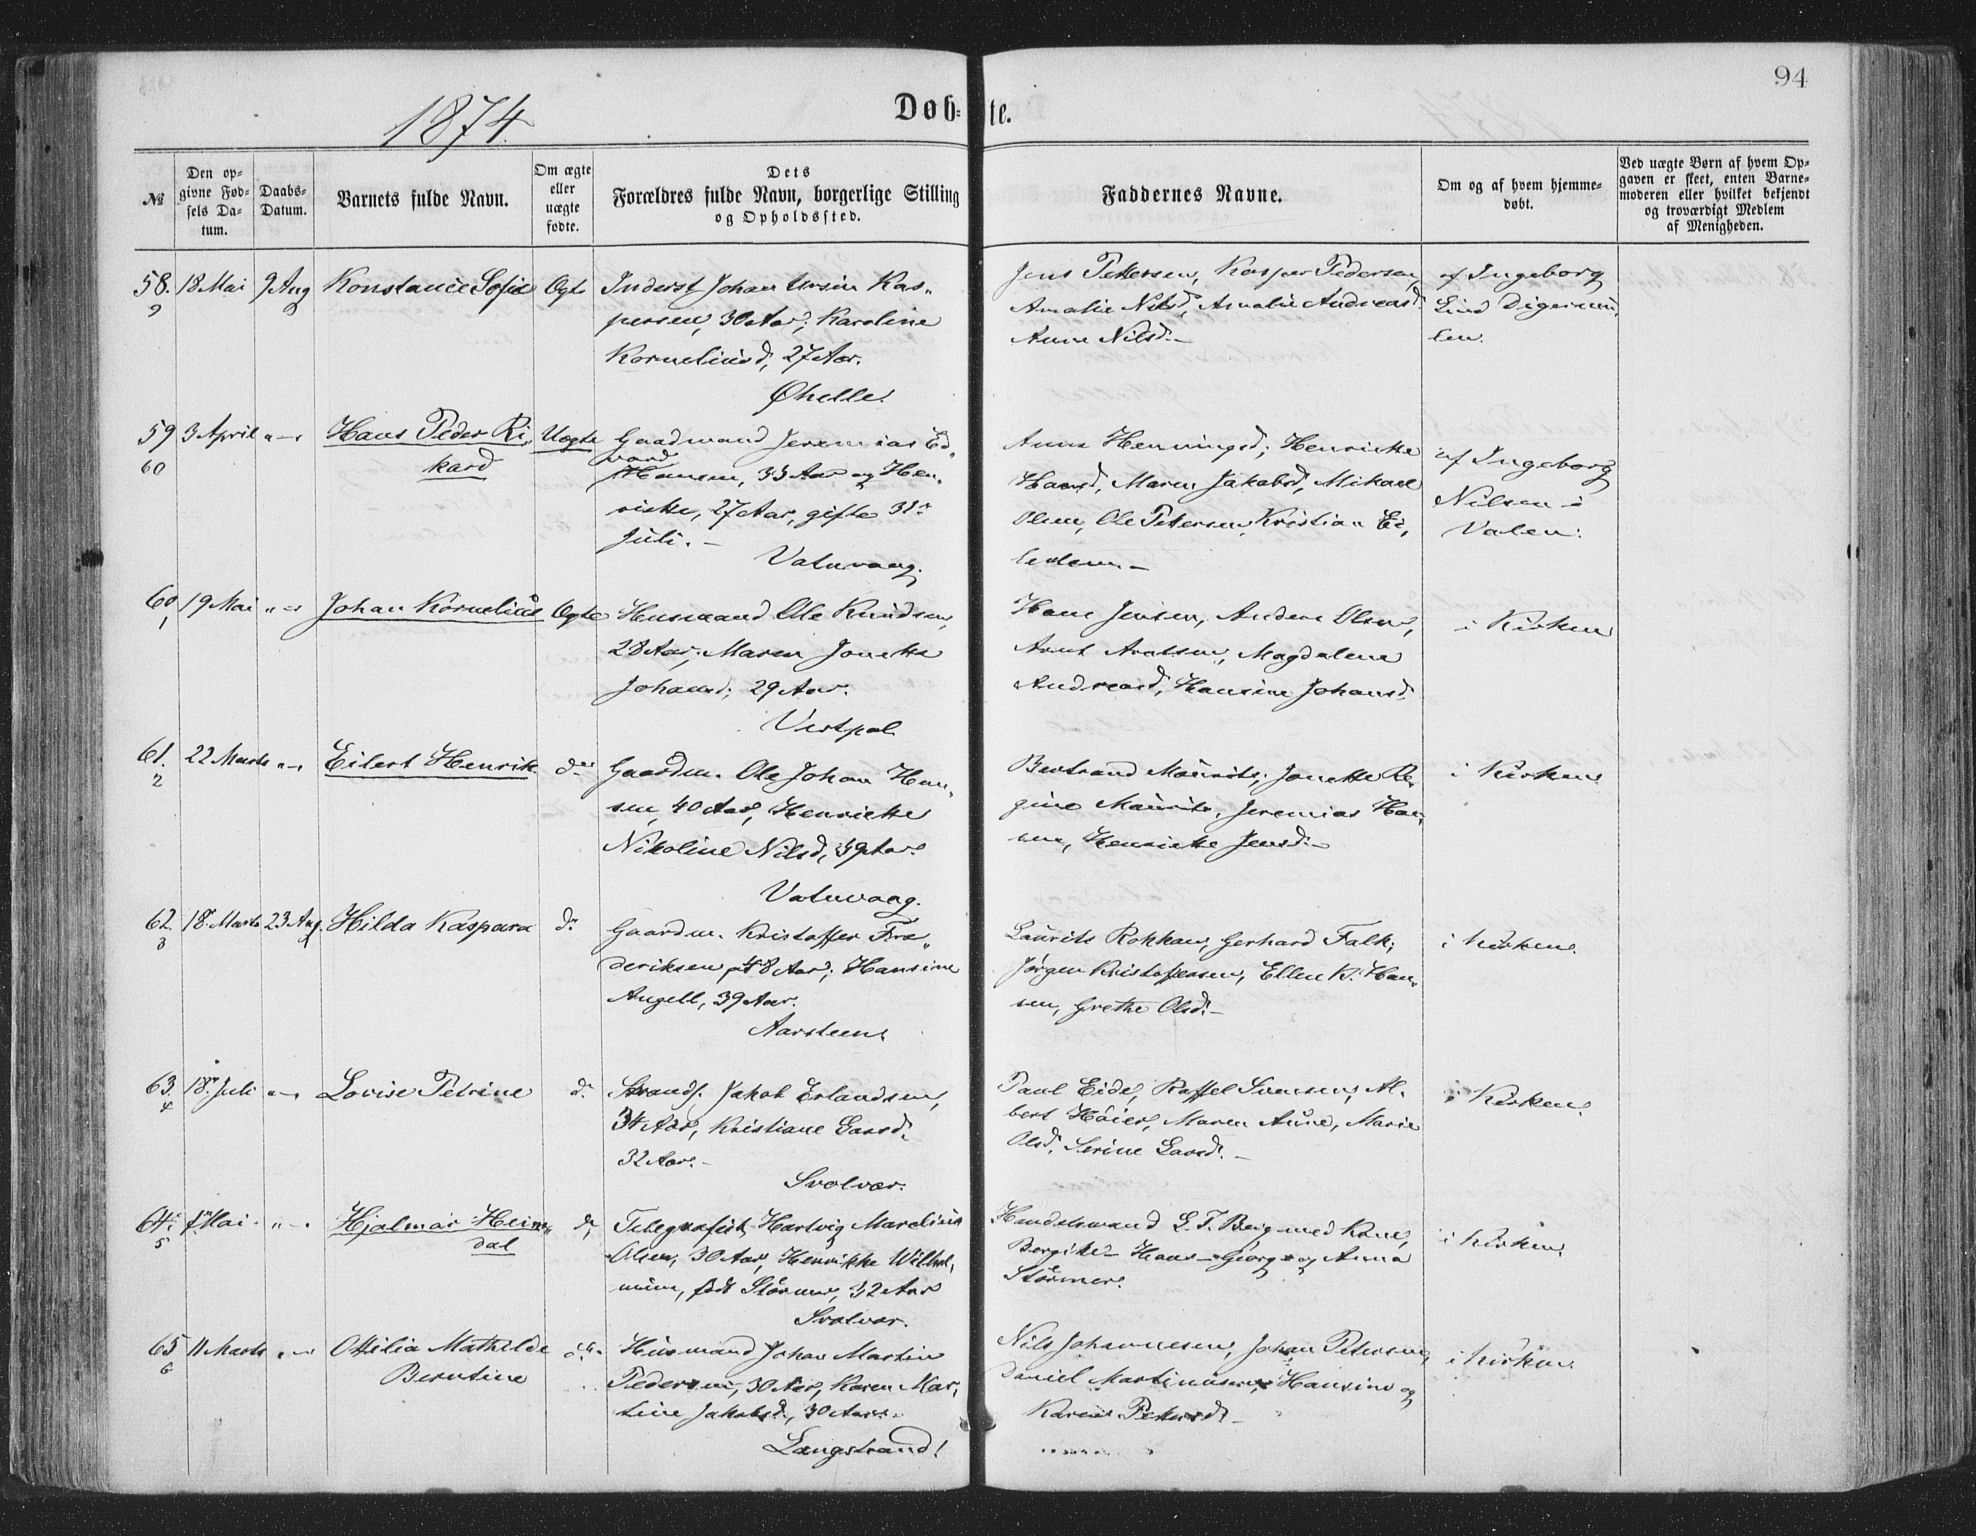 94
1874.
Døb-
te.
№
Den op-
givne Fød-
sels Da-
tum.
Daabs-
Datum.
Barnets fulde Navn.
Om ægte
eller
uægte
fødte.
Dets
Forældres fulde Navn, borgerlige Stilling
og Opholdssted.
Faddernes Navne.
Om og af hvem hjemme-
døbt.
Ved uægte Børn af hvem Op-
gaven er skeet, enten Barne-
moderen eller hvilket bekjendt
og troværdigt Medlem
af Menigheden.
58.
9
18 Mai
9 Aug
Konstance Sofie
Ægte
Inderst Johan Ursin Kas-
persen, 30 Aar, Karoline
Korneliusd, 27 Aar.
Øhelle.
Jens Pettersen, Kasper Pedersen,
Amalie Nilsd, Amalie Andreasd.
Anne Nilsd. –
af Ingeborg
Lind Digermu-
len.
59
60
3 April
" – "
Hans Peder Ri-
kard
Uægte
Gaardmand Jeremias Ed-
vard
Hansen, 33 Aar og Hen-
rikke, 27 Aar, gifte 31.
Juli. –
Vatnvaag.
Anna Henningsd; Henrikke
Hansd, Maren Jakobsd, Mikael
Olsen, Ole Petersen, Kristian Ei-
ledsen. –
af Ingeborg
Nilsen i
Valen.
60
1
19 Mai
" – "
Johan Kornelius
Ægte
Husmand Ole Knudsen,
28 Aar, Maren Jonette
Johansd; 29 Aar.
Vestpol
Hans Jensen, Anders Olsen,
Arnt Arntsen, Magdalene
Andreasd, Hansine Johansd.
i Kirken
61.
2
22 Marts
" – "
Eilert Henrik.
do
Gaardm. Ole Johan Han-
sen, 40 Aar, Henrikke
Nikoline Nilsd, 39 Aar.
Vatnvaag.
Bertrand Maurits; Jonette Re-
gine Maurits, Jeremias Han-
sen, Henrikke Jensd. –
i Kirken.
62.
3
18. Marts
23 Aug.
Hilda Kaspara
do
Gaardm. Kristoffer Fre-
deriksen, 48 Aar; Hansine
Angell, 39 Aar.
Aarsteen.
Laurits Rokkan, Gerhard Falk;
Jørgen Kristoffersen, Ellen K. Han-
sen, Grethe Olsd. –
i Kirken.
63.
4
18. Juli
" – "
Lovise Petrine
do
Strands. Jakob Erlandsen,
34 Aar, Kristiane Larsd.
32 Aar. –
Svolvær.
Paul Eide, Raffel Svensen, Al-
bert Høier, Maren Aune, Marie
Olsd, Serine Larsd. –
i Kirken.
64.
5
1. Mai
" – "
Hjalmar Heim-
dal
do
Telegrafist Hartvig Marelius
Olsen, 30 Aar, Henrikke Wilhel-
mine, født Størmer, 32 Aar
Svolvær.
Handelsmand L. T. Berg med Kone,
Bergitte Hans Georg og Anna
Størmer.
i Kirken.
65
6
11 Marts
" – "
Otilia Mathilde
Berntine
do
Husmand Johan Martin
Pedersen, 30 Aar, Karen Mar-
tine Jakobsd, 30 Aar.
Langstrand.
Nils Johannesen, Johan Petersen,
Daniel Martinusen, Hansine og
Karen Petersd. –
i Kirken.